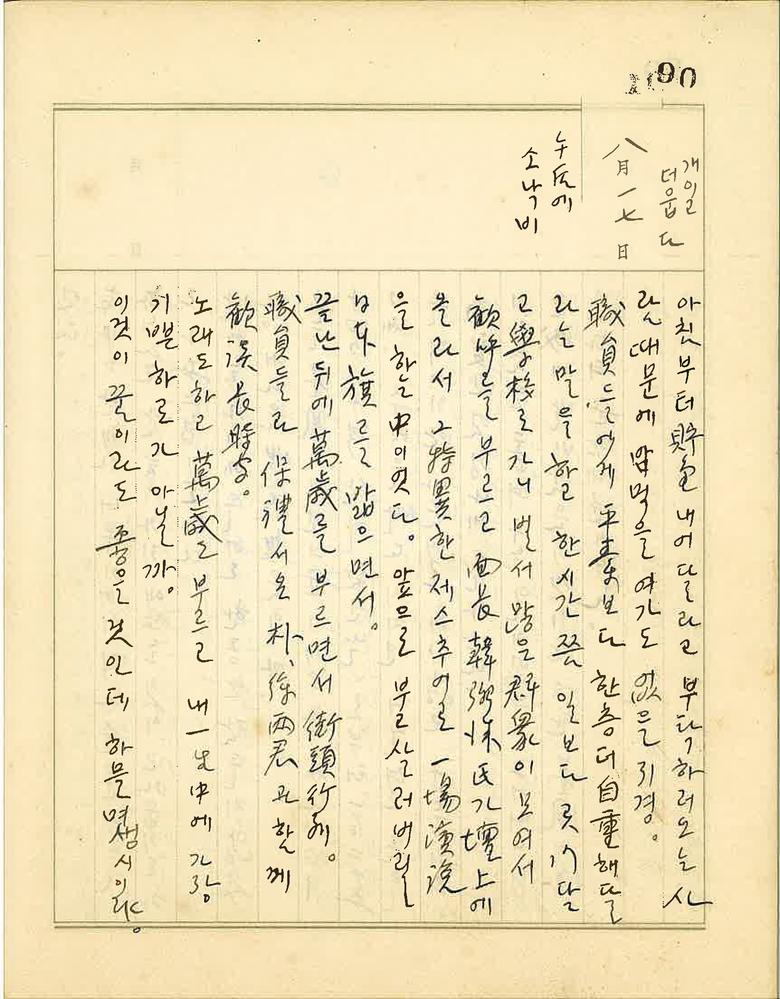 90
개이고
더웁다
八月一七日
午后에
소낙비
아침부터 貯金 내어 달라고 부탁하러 오는 사
람 때문에 밥먹을 여가도 없을 지경。
職員들에게 平素보다 한층 더 自重해 달
라는 말을 하고 한시간 쯤 일보다
고 學校로 가니 벌서 많은 群衆이 모여서
歡呼를 부르고 面長 韓 氏가 壇上에
올라서 그 特異한 제스추어로 一場演說
을 하는 中이엿다。 앞으로 불살러버릴
日本旗를 밟으면서。
끝난 뒤에 萬歲를 부르면서 街頭行進。
職員들과 保禮서 온 朴、徐 兩君과 함께
歡談長時間。
노래도 하고 萬歲도 부르고 내 一生中에 가장
기쁜 하로가 아닐까。
이것이 꿈이라도 좋을 것인데 하믈며 生시이랴。